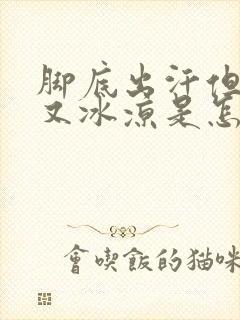 脚底出汗但
又冰凉是怎
會喫飯的猫咪